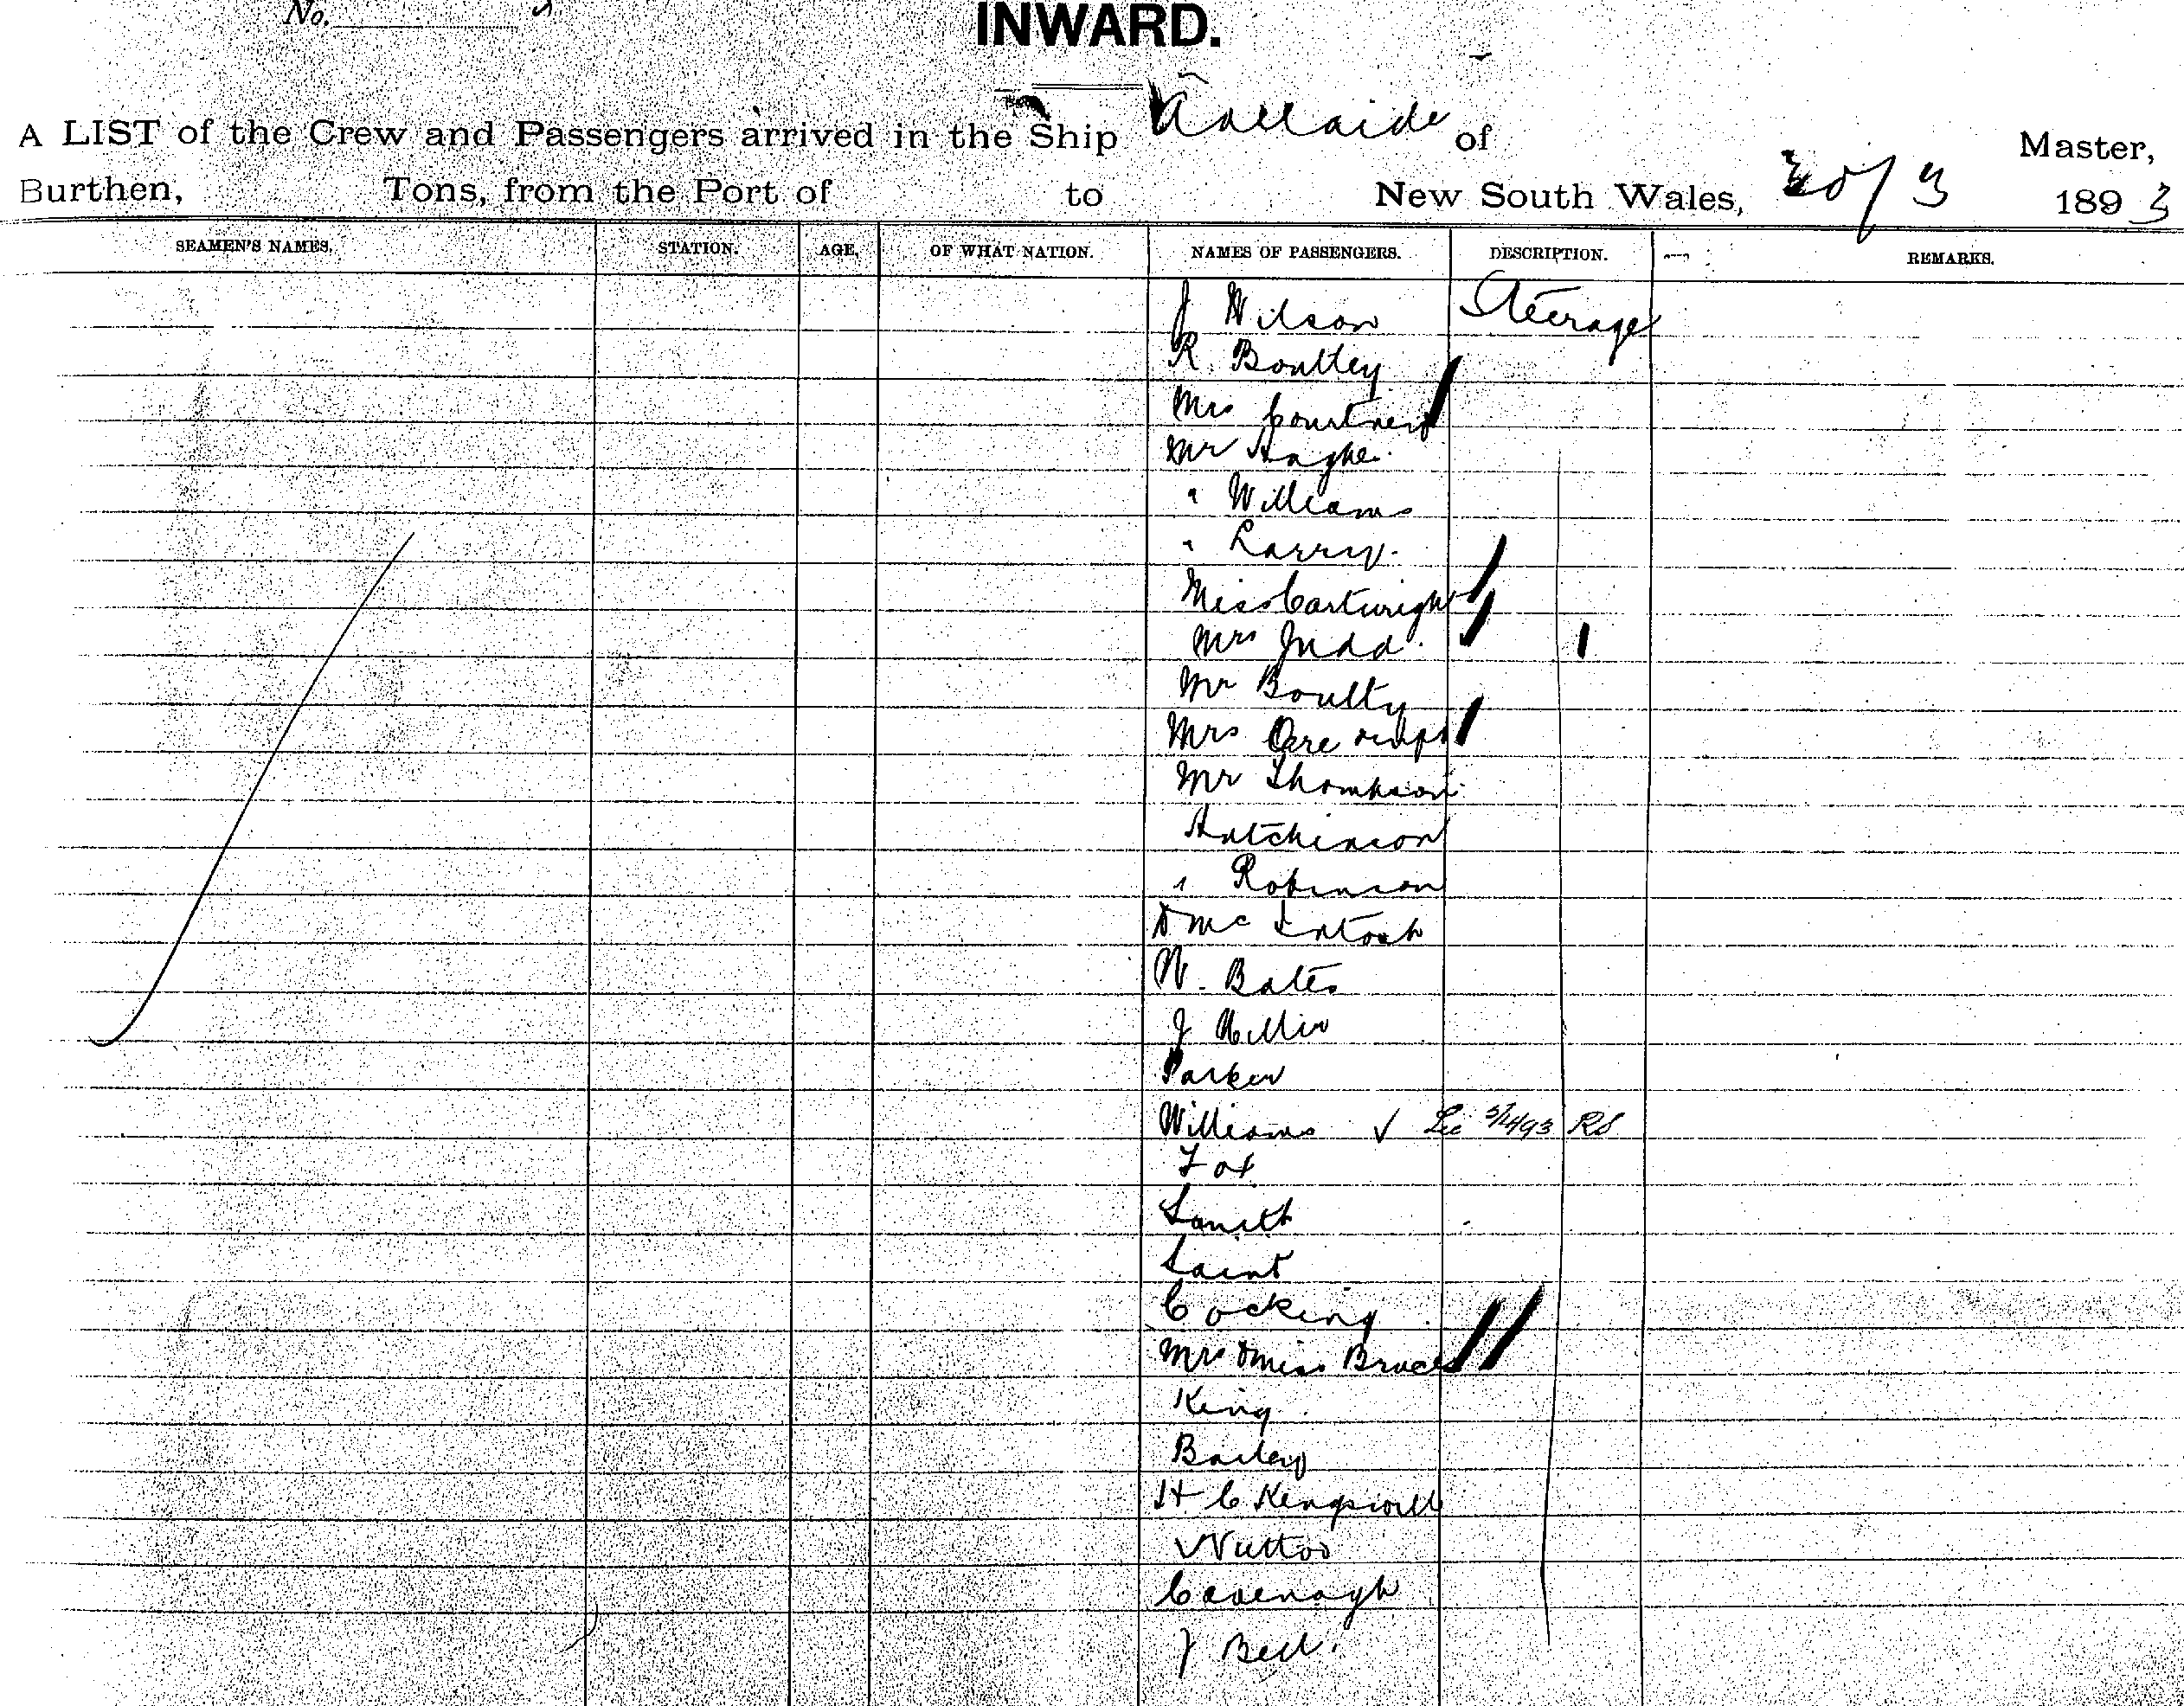 No.
INWARD.
A LIST of the Crew and Passengers arrived in the Ship Adelaide of Master,
Burthen, Tons, from the Port of to New South Wales, 30/3 1893
SEAMEN'S NAMES. STATION. AGE. OF WHAT NATION. NAMES OF PASSENGERS. DESCRIPTION. REMARKS.
J Wilson Steerage
R. Boultey
Mrs Courtney
Mr Hughe
" Williams
" Larry
Miss Cartwright
Mrs Judd
Mr Boulty
Mrs
Mr Thompson
Hutchinson
" Robinson
D McIntosh
W. Bates
J
Parker
Williams ✓ RS
Fox
Smith
Saint
Cocking
Mrs & Miss Bruce
King
Bailey
H C
Cavenagh
J Bell